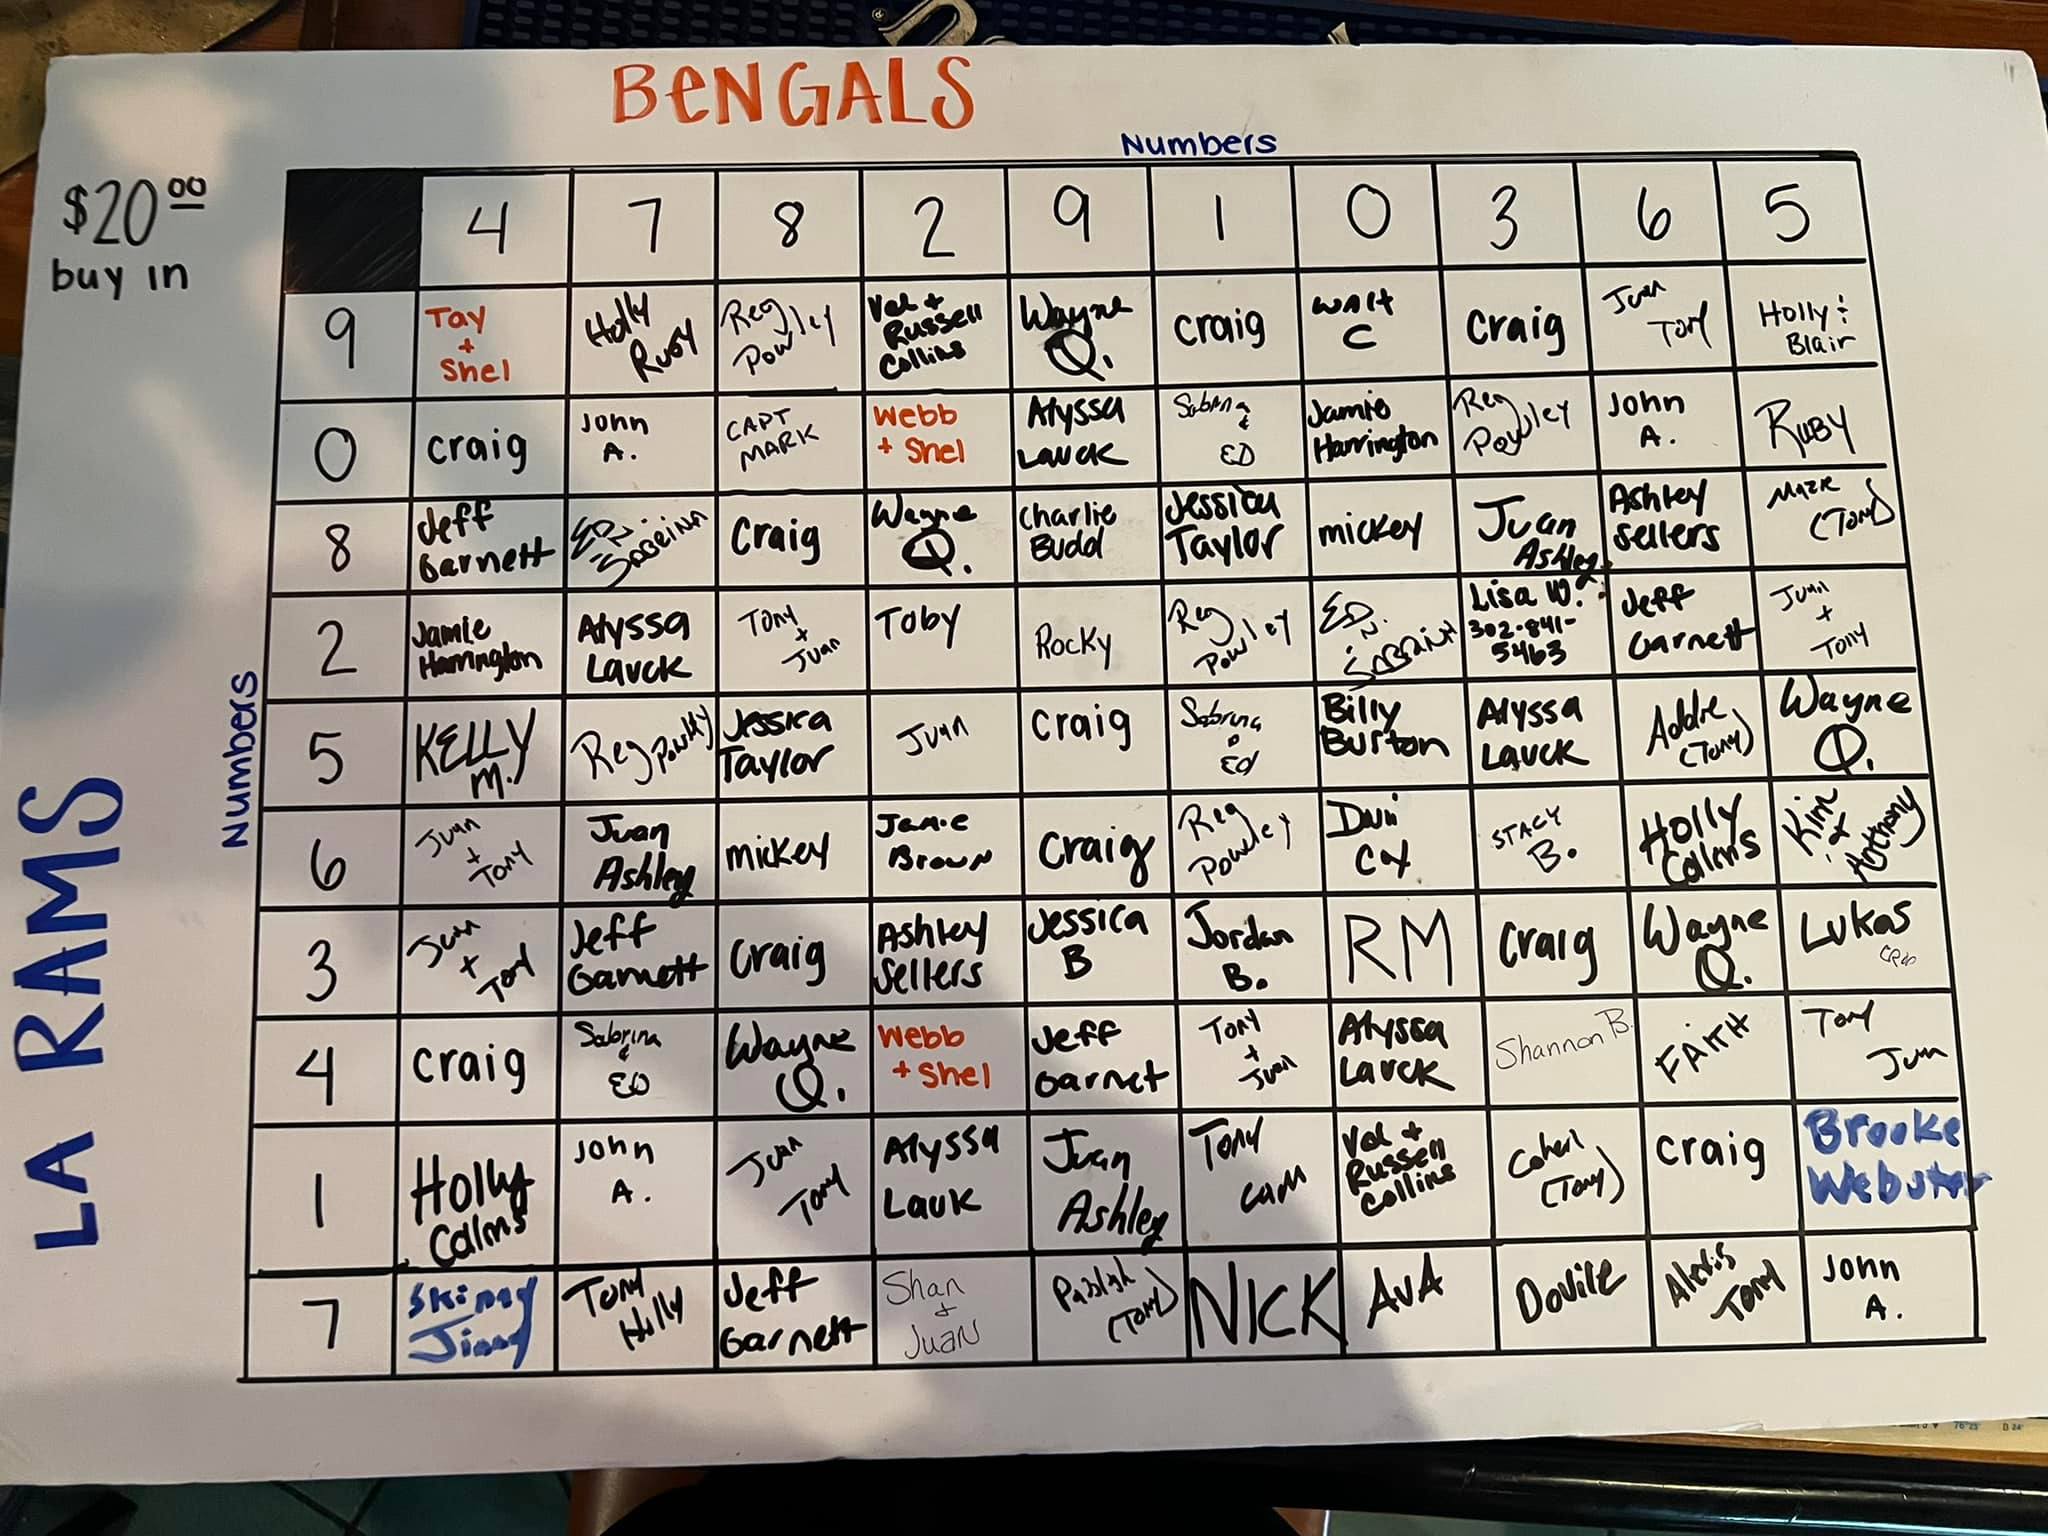 BENGALS
Numbers
$20.00
buy in
4 7 8 2 9 1 0 3 6 5
9 Tay + Shel Holly Ruby Reg Powley Val + Russell Collins Wayne Q. Craig Walt C Craig Juan Tony Holly & Blair
0 Craig John A. CAPT MARK Webb + Shel Alyssa Lauck Sabrina & ED Jamie Harrington Reg Powley John A. Ruby
8 Jeff Garnett ED N. SABRINA Craig Wayne Q. Charlie Budd Jessica Taylor mickey Juan Ashley Ashley Sellers (Tony)
2 Jamie Harrington Alyssa Lauck Tony + Juan Toby Rocky Reg Powley ED N. SABRINA Lisa W. 302-841-5463 Jeff Garnett Juan + Tony
Numbers
5 KELLY M. Reg Powley Jessica Taylor Juan Craig Sabrina & Ed Billy Burton Alyssa Lauck Addie (Tony) Wayne Q.
6 Juan + Tony Juan Ashley mickey Jamie Brown Craig Reg Powley Cox STACY B. Holly Collins Kim + Anthony
3 Juan + Tony Jeff Garnett Craig Ashley Sellers Jessica B Jordan B. RM Craig Wayne Q. Lukas
4 Craig Sabrina & ED Wayne Q. Webb + Shel Jeff Garnet Tony + Juan Alyssa Larck Shannon B. FAITH Tony Juan
LA RAMS
1 Holly Collins John A. Juan Tony Alyssa Lauk Juan Ashley Tony Val + Russell Collins (Tony) Craig Brooke Webster
7 Skinny Jimmy Tony Holly Jeff Garnett Shan + Juan (Tony) NICK AVA Dovile Alexis Tony John A.